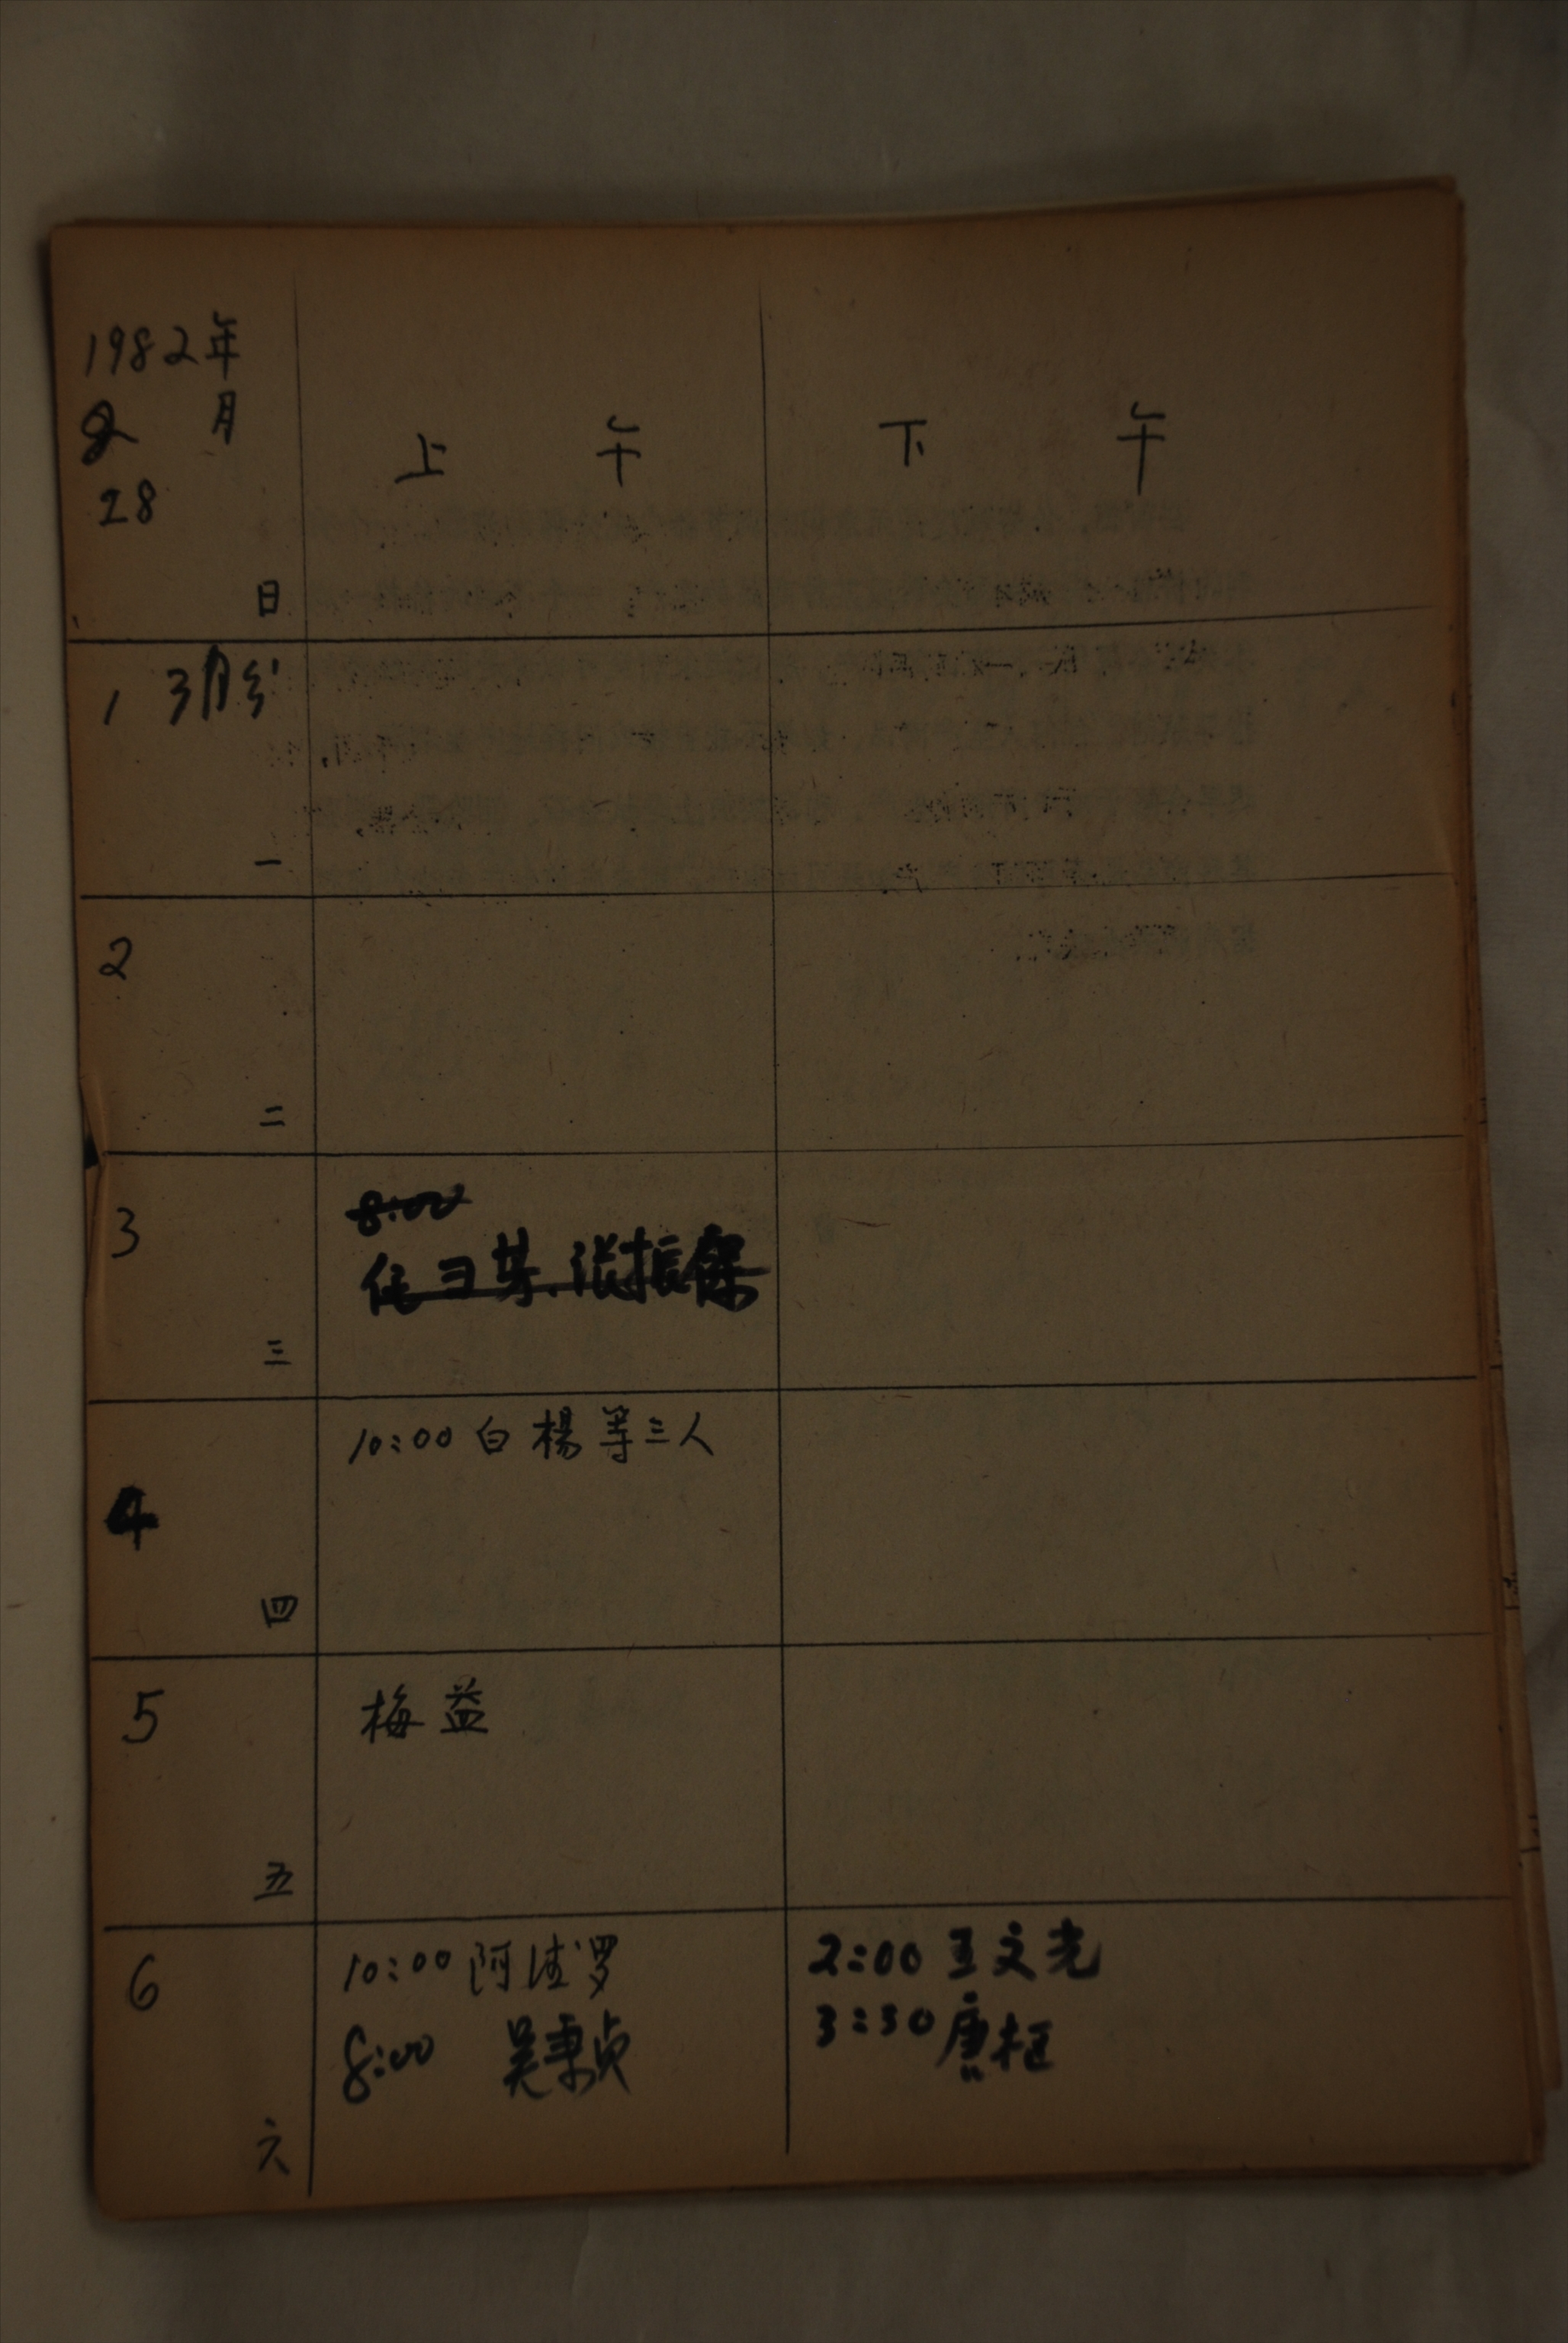 1982年
2 月
28
日
上 午
下 午
1 3月份
一
2
二
3
8:00
张振
三
10:00 白楊等三人
4
四
5
梅益
五
6
10:00 阿波罗
8:00 吴秉贞
2:00 王文光
3:30 唐框
六